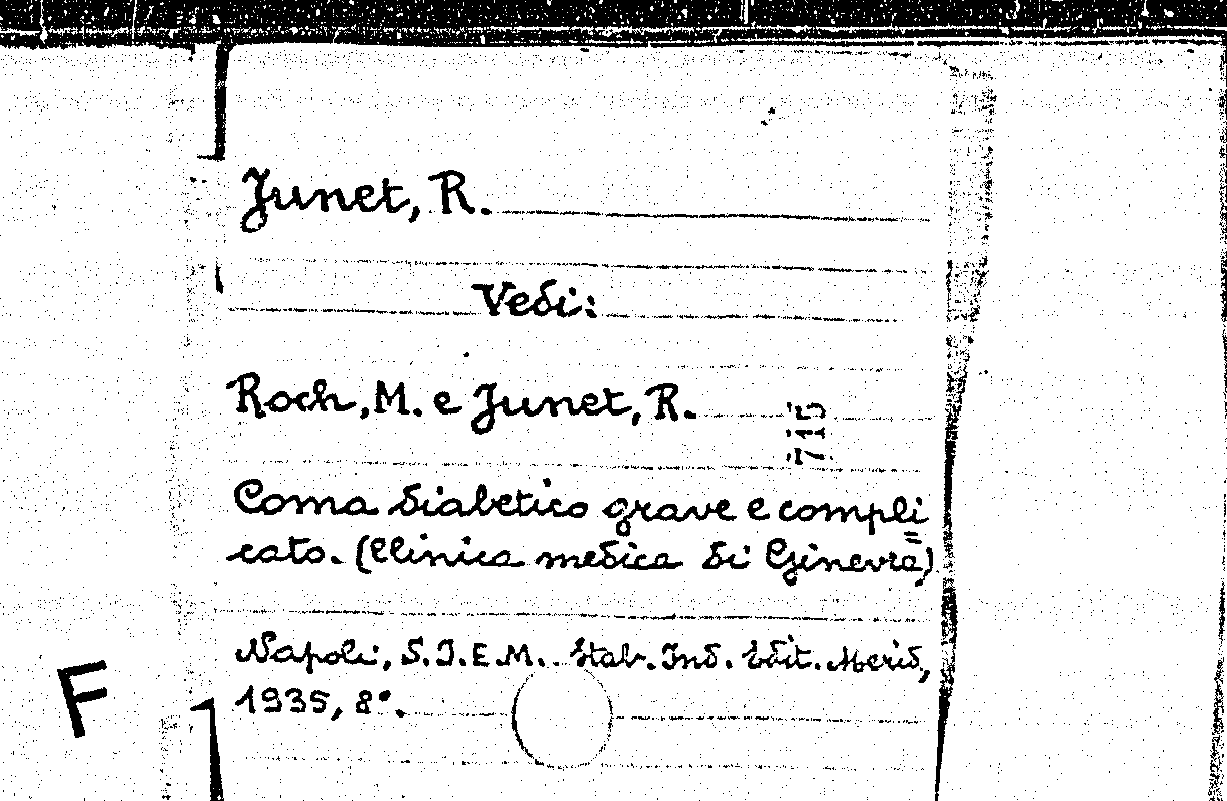 Junet, R.
Vedi:
Roch, M. e Junet, R.
715
Coma diabetico grave e compli=
cato. (Clinica medica di Ginevra)
Napoli, S.I.E.M. Stab. Ind. Edit. Merid,
1935, 8°.
F